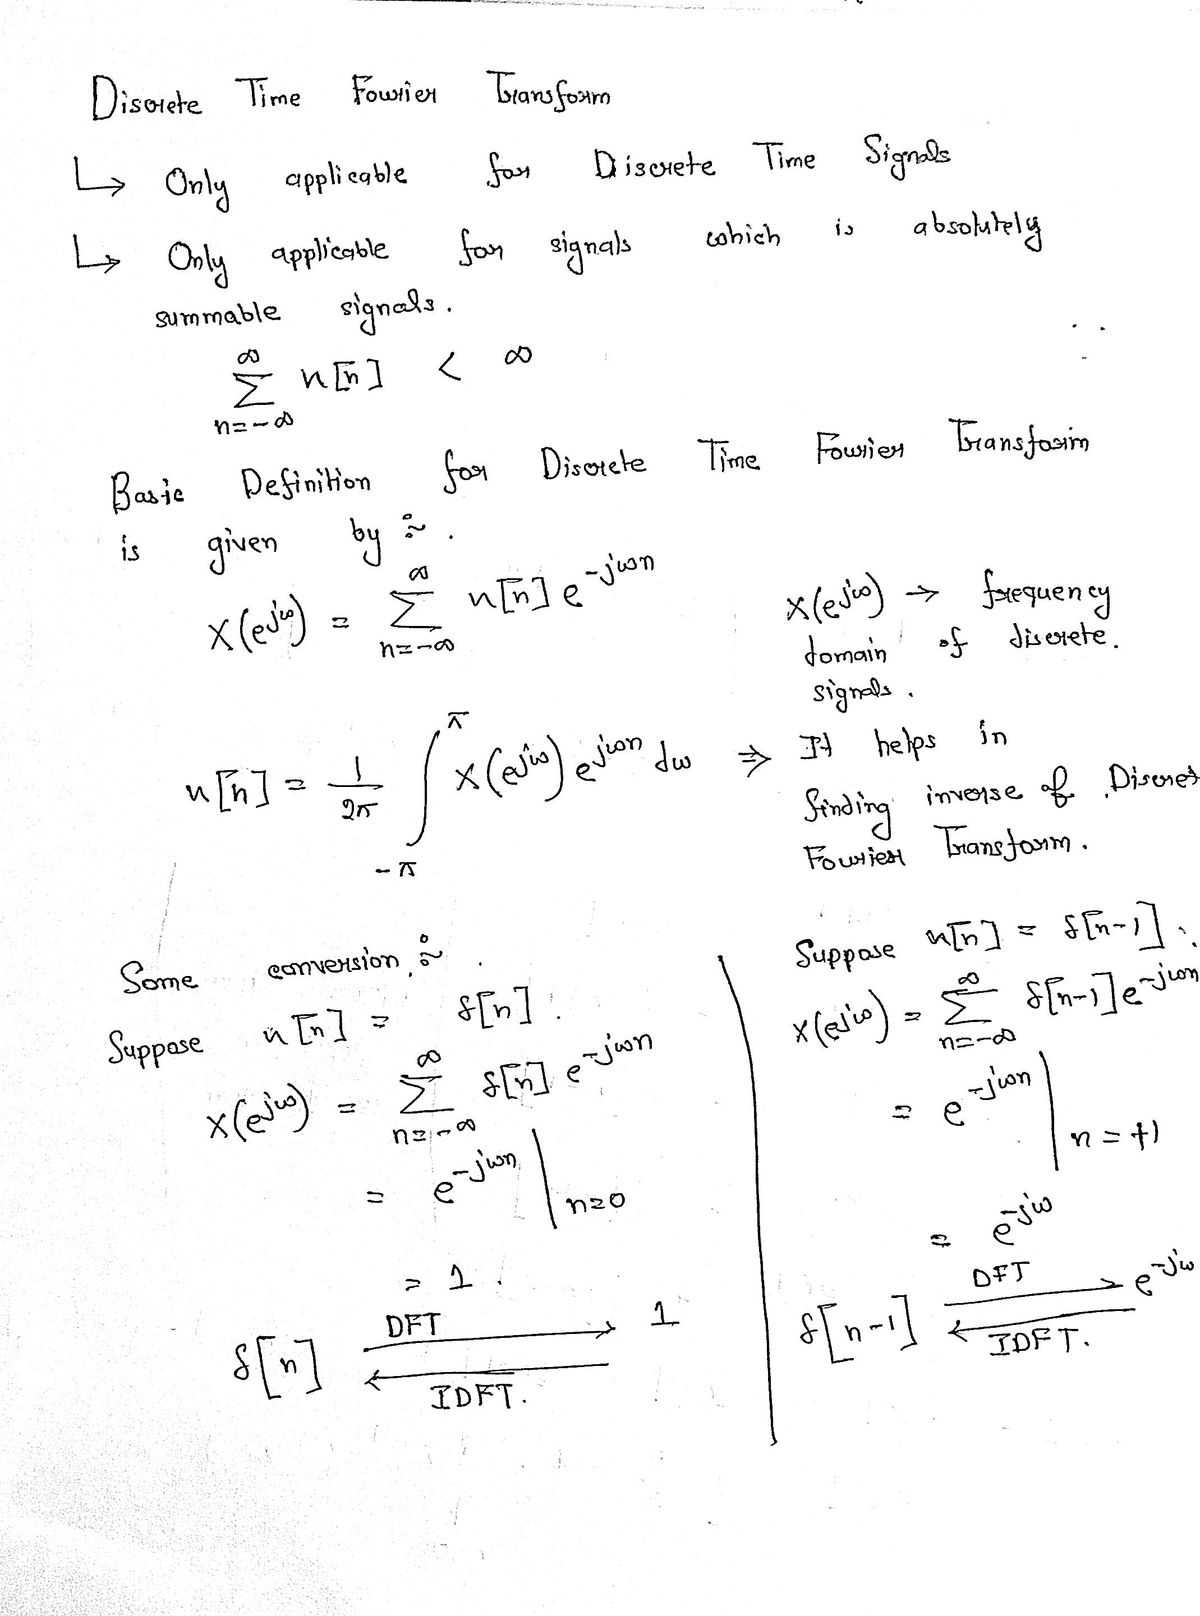 Discrete Time Fourier Transform
↳ Only applicable for Discrete Time Signals
↳ Only applicable for signals which is absolutely
summable signals.
∑_{n=-∞}^{∞} x[n] < ∞
Basic Definition for Discrete Time Fourier Transform
is given by :~ .
X(e^{jω}) = ∑_{n=-∞}^{∞} x[n] e^{-jωn}
X(e^{jω}) → frequency
domain of discrete.
signals.
x[n] = 1/2π ∫_{-π}^{π} X(e^{jω}) e^{jωn} dω ⇒ It helps in
finding inverse of Discret
Fourier Transform.
Some conversion :~ .
Suppose x[n] = δ[n].
X(e^{jω}) = ∑_{n=-∞}^{∞} δ[n] e^{-jωn}
= e^{-jωn} |_{n=0}
= 1.
δ[n] DFT → 1
← IDFT.
Suppose x[n] = δ[n-1].
X(e^{jω}) = ∑_{n=-∞}^{∞} δ[n-1] e^{-jωn}
= e^{-jωn} |_{n=+1}
= e^{-jω}
δ[n-1] DFT → e^{-jω}
← IDFT.